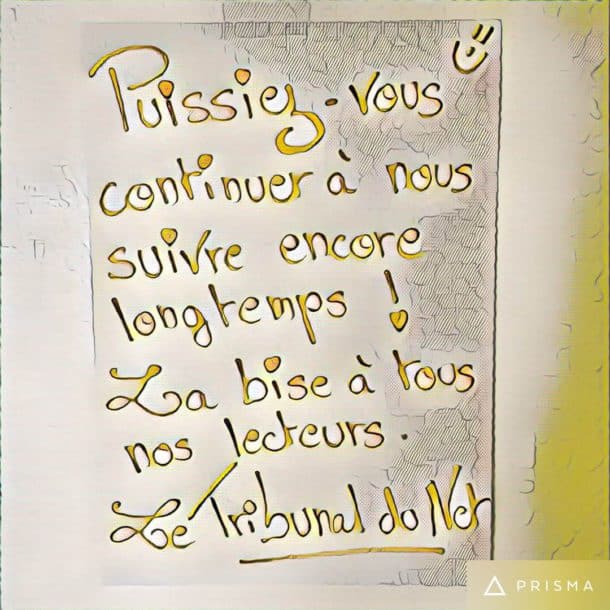 Puissiez-vous
continuer à nous
suivre encore
longtemps !
La bise à tous
nos lecteurs.
Le Tribunal du Net
PRISMA